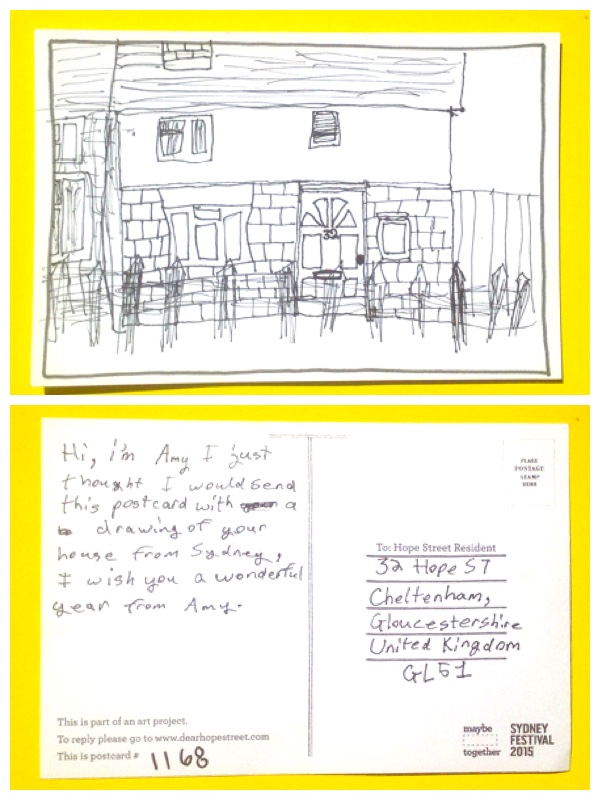 32
Hi, i'm Amy I just
thought I would send
this postcard with a
drawing of your
house from Sydney,
I wish you a wonderful
year from Amy.
This is part of an art project.
To reply please go to www.dearhopestreet.com
This is postcard # 1168
PLACE
POSTAGE
STAMP
HERE
To: Hope Street Resident
32 Hope ST
Cheltenham,
Gloucestershire
United Kingdom
GL51
maybe
together
SYDNEY
FESTIVAL
2015